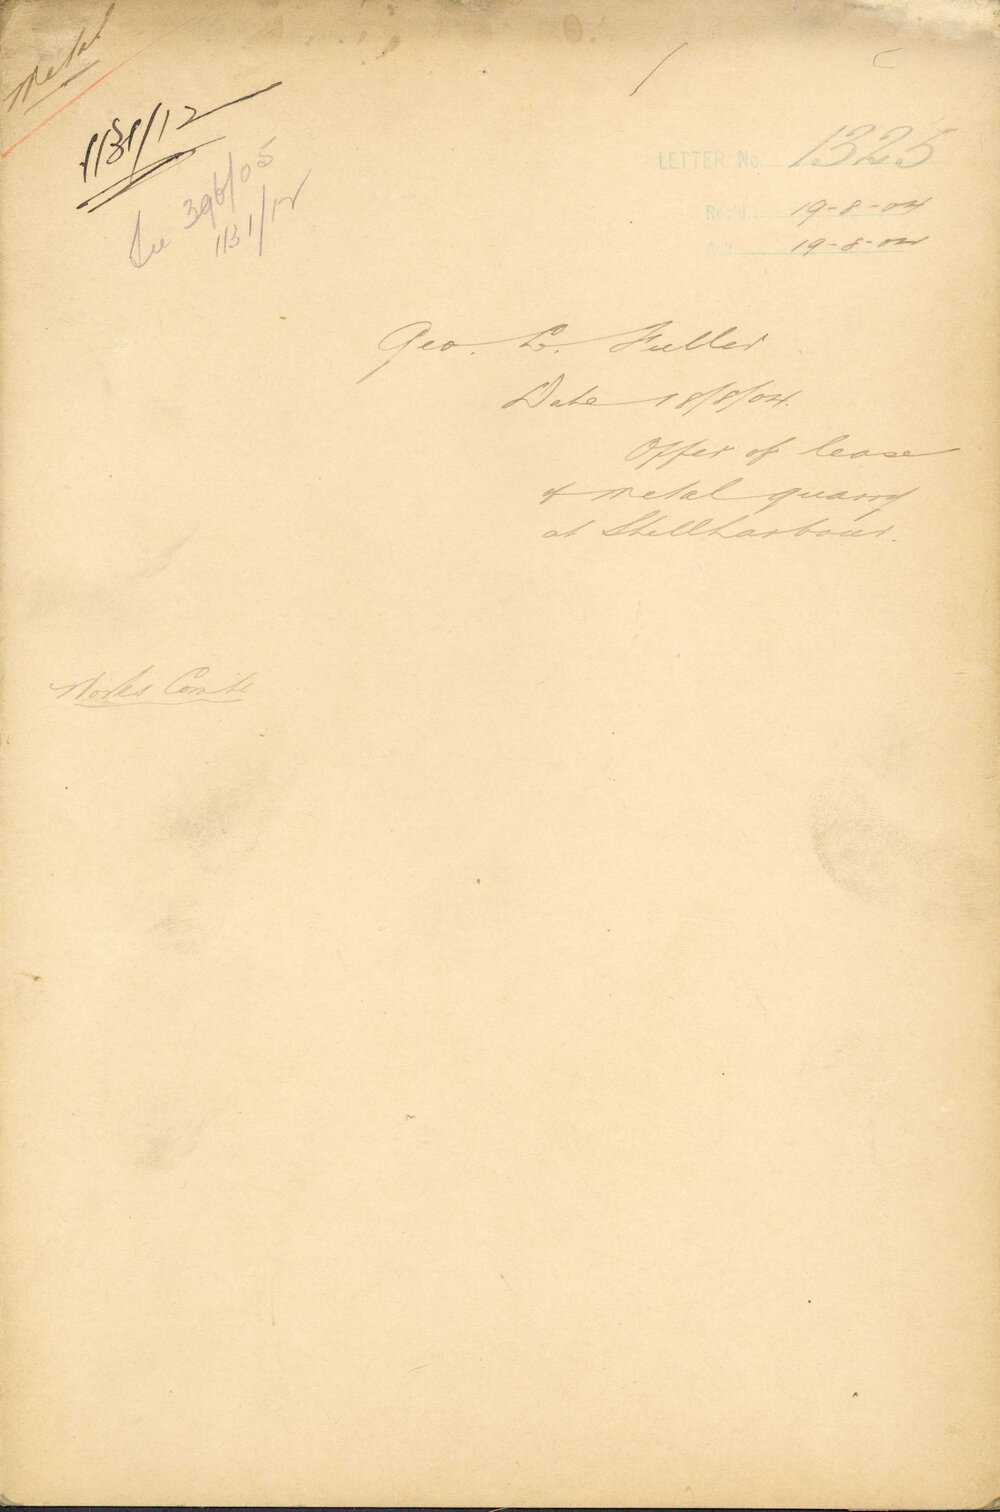 Metal
1131/12
See 396/05
1131/12
LETTER No. 1325
Rec'd 19-8-04
19-8-04
Geo. L. Fuller
Date 18/8/04.
Offer of lease
of metal quarry
at Shellharbour.
Works Comte